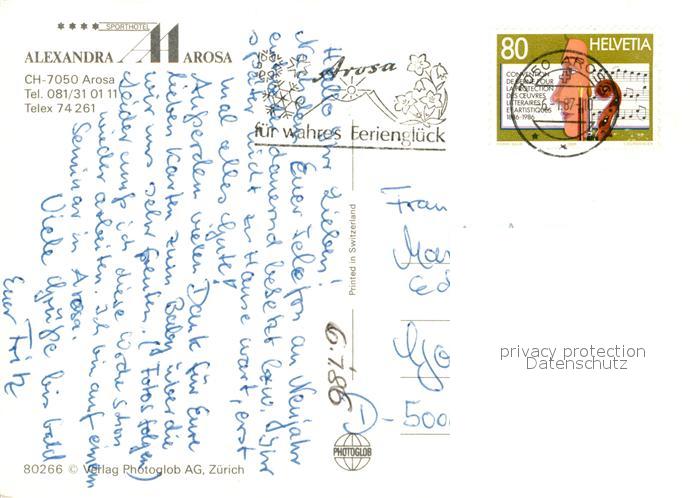 ★★★★ SPORTHOTEL
ALEXANDRA AROSA
CH-7050 Arosa
Tel. 081/31 01 11
Telex 74 261
Arosa
für wahres Ferienglück
80 HELVETIA
CONVENTION
DE BERNE POUR
LA PROTECTION
DES ŒUVRES
LITTERAIRES
ET ARTISTIQUES
1886-1986
7050 AROSA
Hallo Ihr Lieben!
Euer Telefon an Neujahr
dauernd besetzt bzw. Ihr
nicht zu Hause wart, erst
mal alles Gute!
Außerdem vielen Dank für Eure
lieben Karten zum Baby über die
wir uns sehr freuten. (Fotos folgen)
Leider muß ich diese Woche schon
wieder arbeiten. Ich bin auf einem
Seminar in Arosa.
Viele Grüße bis bald
Euer Fritz
Printed in Switzerland
6.1.86
D-500
PHOTOGLOB
80266 © Verlag Photoglob AG, Zürich
privacy protection
Datenschutz